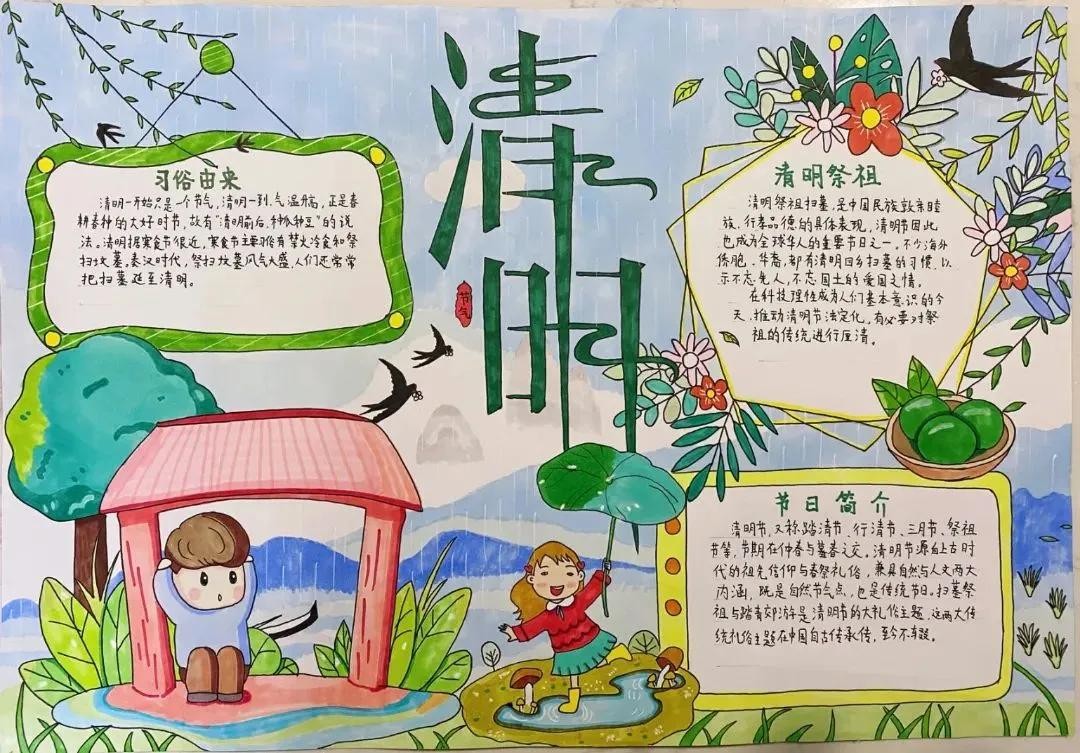 清明
节气
习俗由来
清明一开始只是一个节气,清明一到,气温升高,正是春
耕春种的大好时节,故有“清明前后,种瓜种豆”的说
法。清明据寒食节很近,寒食节主要习俗有禁火冷食和祭
扫坟墓。秦汉时代,祭扫坟墓风气大盛,人们还常常
把扫墓延至清明。
清明祭祖
清明祭祖扫墓,是中国民族敦亲睦
族、行孝品德的具体表现,清明节因此
也成为全球华人的重要节日之一,不少海外
侨胞、华裔,都有清明回乡扫墓的习惯,以
示不忘先人,不忘国土的爱国之情。
在科技理性成为人们基本意识的今
天,推动清明节法定化,有必要对祭
祖的传统进行厘清。
节日简介
清明节,又称踏清节、行清节、三月节、祭祖
节等,节期在仲春与暮春之交。清明节源自上古时
代的祖先信仰与春祭礼俗,兼具自然与人文两大
内涵,既是自然节气点,也是传统节日,扫墓祭
祖与踏青郊游是清明节的大礼俗主题,这两大传
统礼俗主题在中国自古传承传,至今不辍。